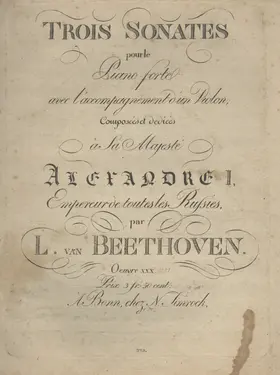 TROIS SONATES
pour le
Piano forte
avec l'accompagnement d'un Violon,
Composées et dediées
à Sa Majesté
ALEXANDRE I.
Empereur de toutes les Russies,
par
L. VAN BEETHOVEN.
Oeuvre XXX
Prix 3 fr: 50 cent:
A Bonn, chez N. Simrock.